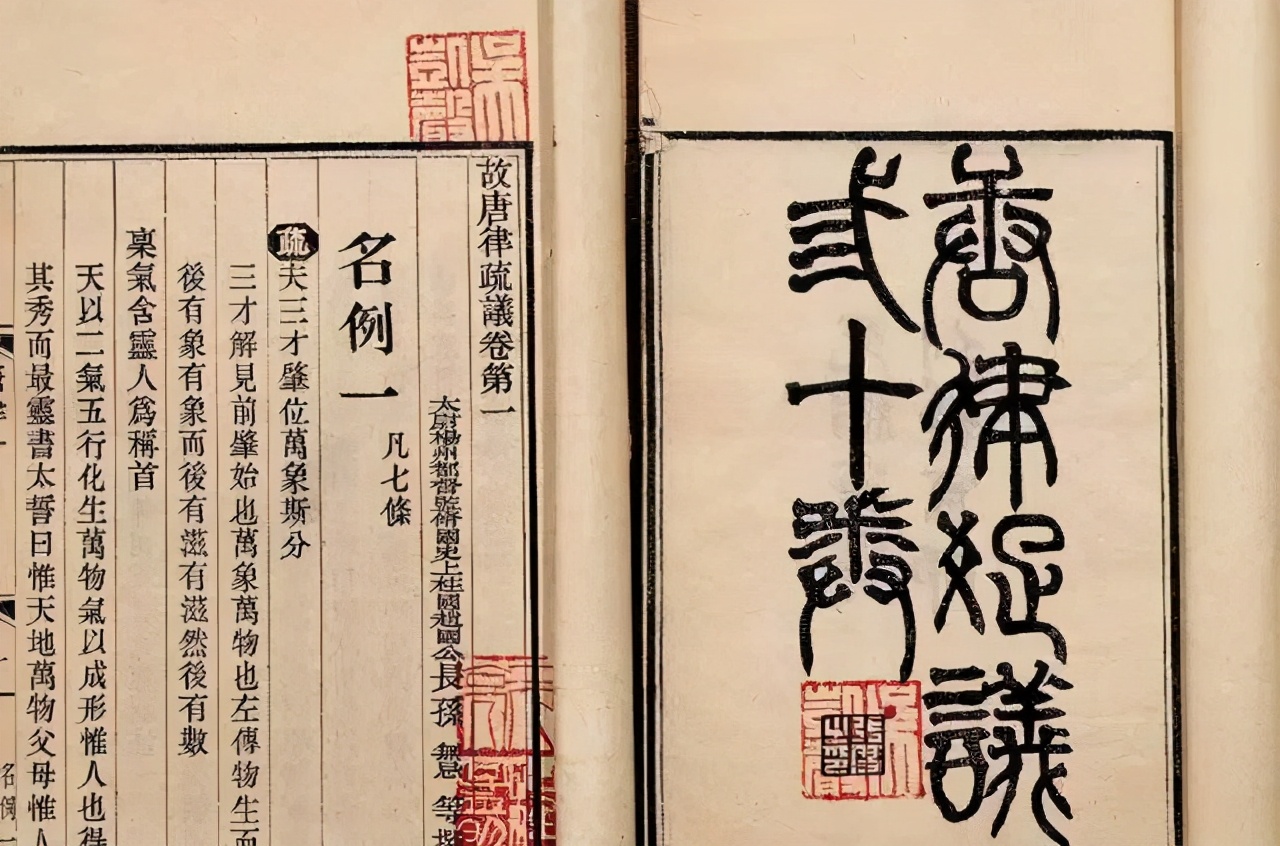 唐律疏議
弎十卷
故唐律疏議卷第一
太尉楊州都督監脩國史上柱國趙國公長孫無忌等撰
名例一
凡七條
疏夫三才肇位萬象斯分
三才解見前肇始也萬象萬物也左傳物生而
後有象有象而後有滋有滋然後有數
稟氣含靈人爲稱首
天以二氣五行化生萬物氣以成形惟人也得
其秀而最靈書太誓曰惟天地萬物父母惟人
名例一